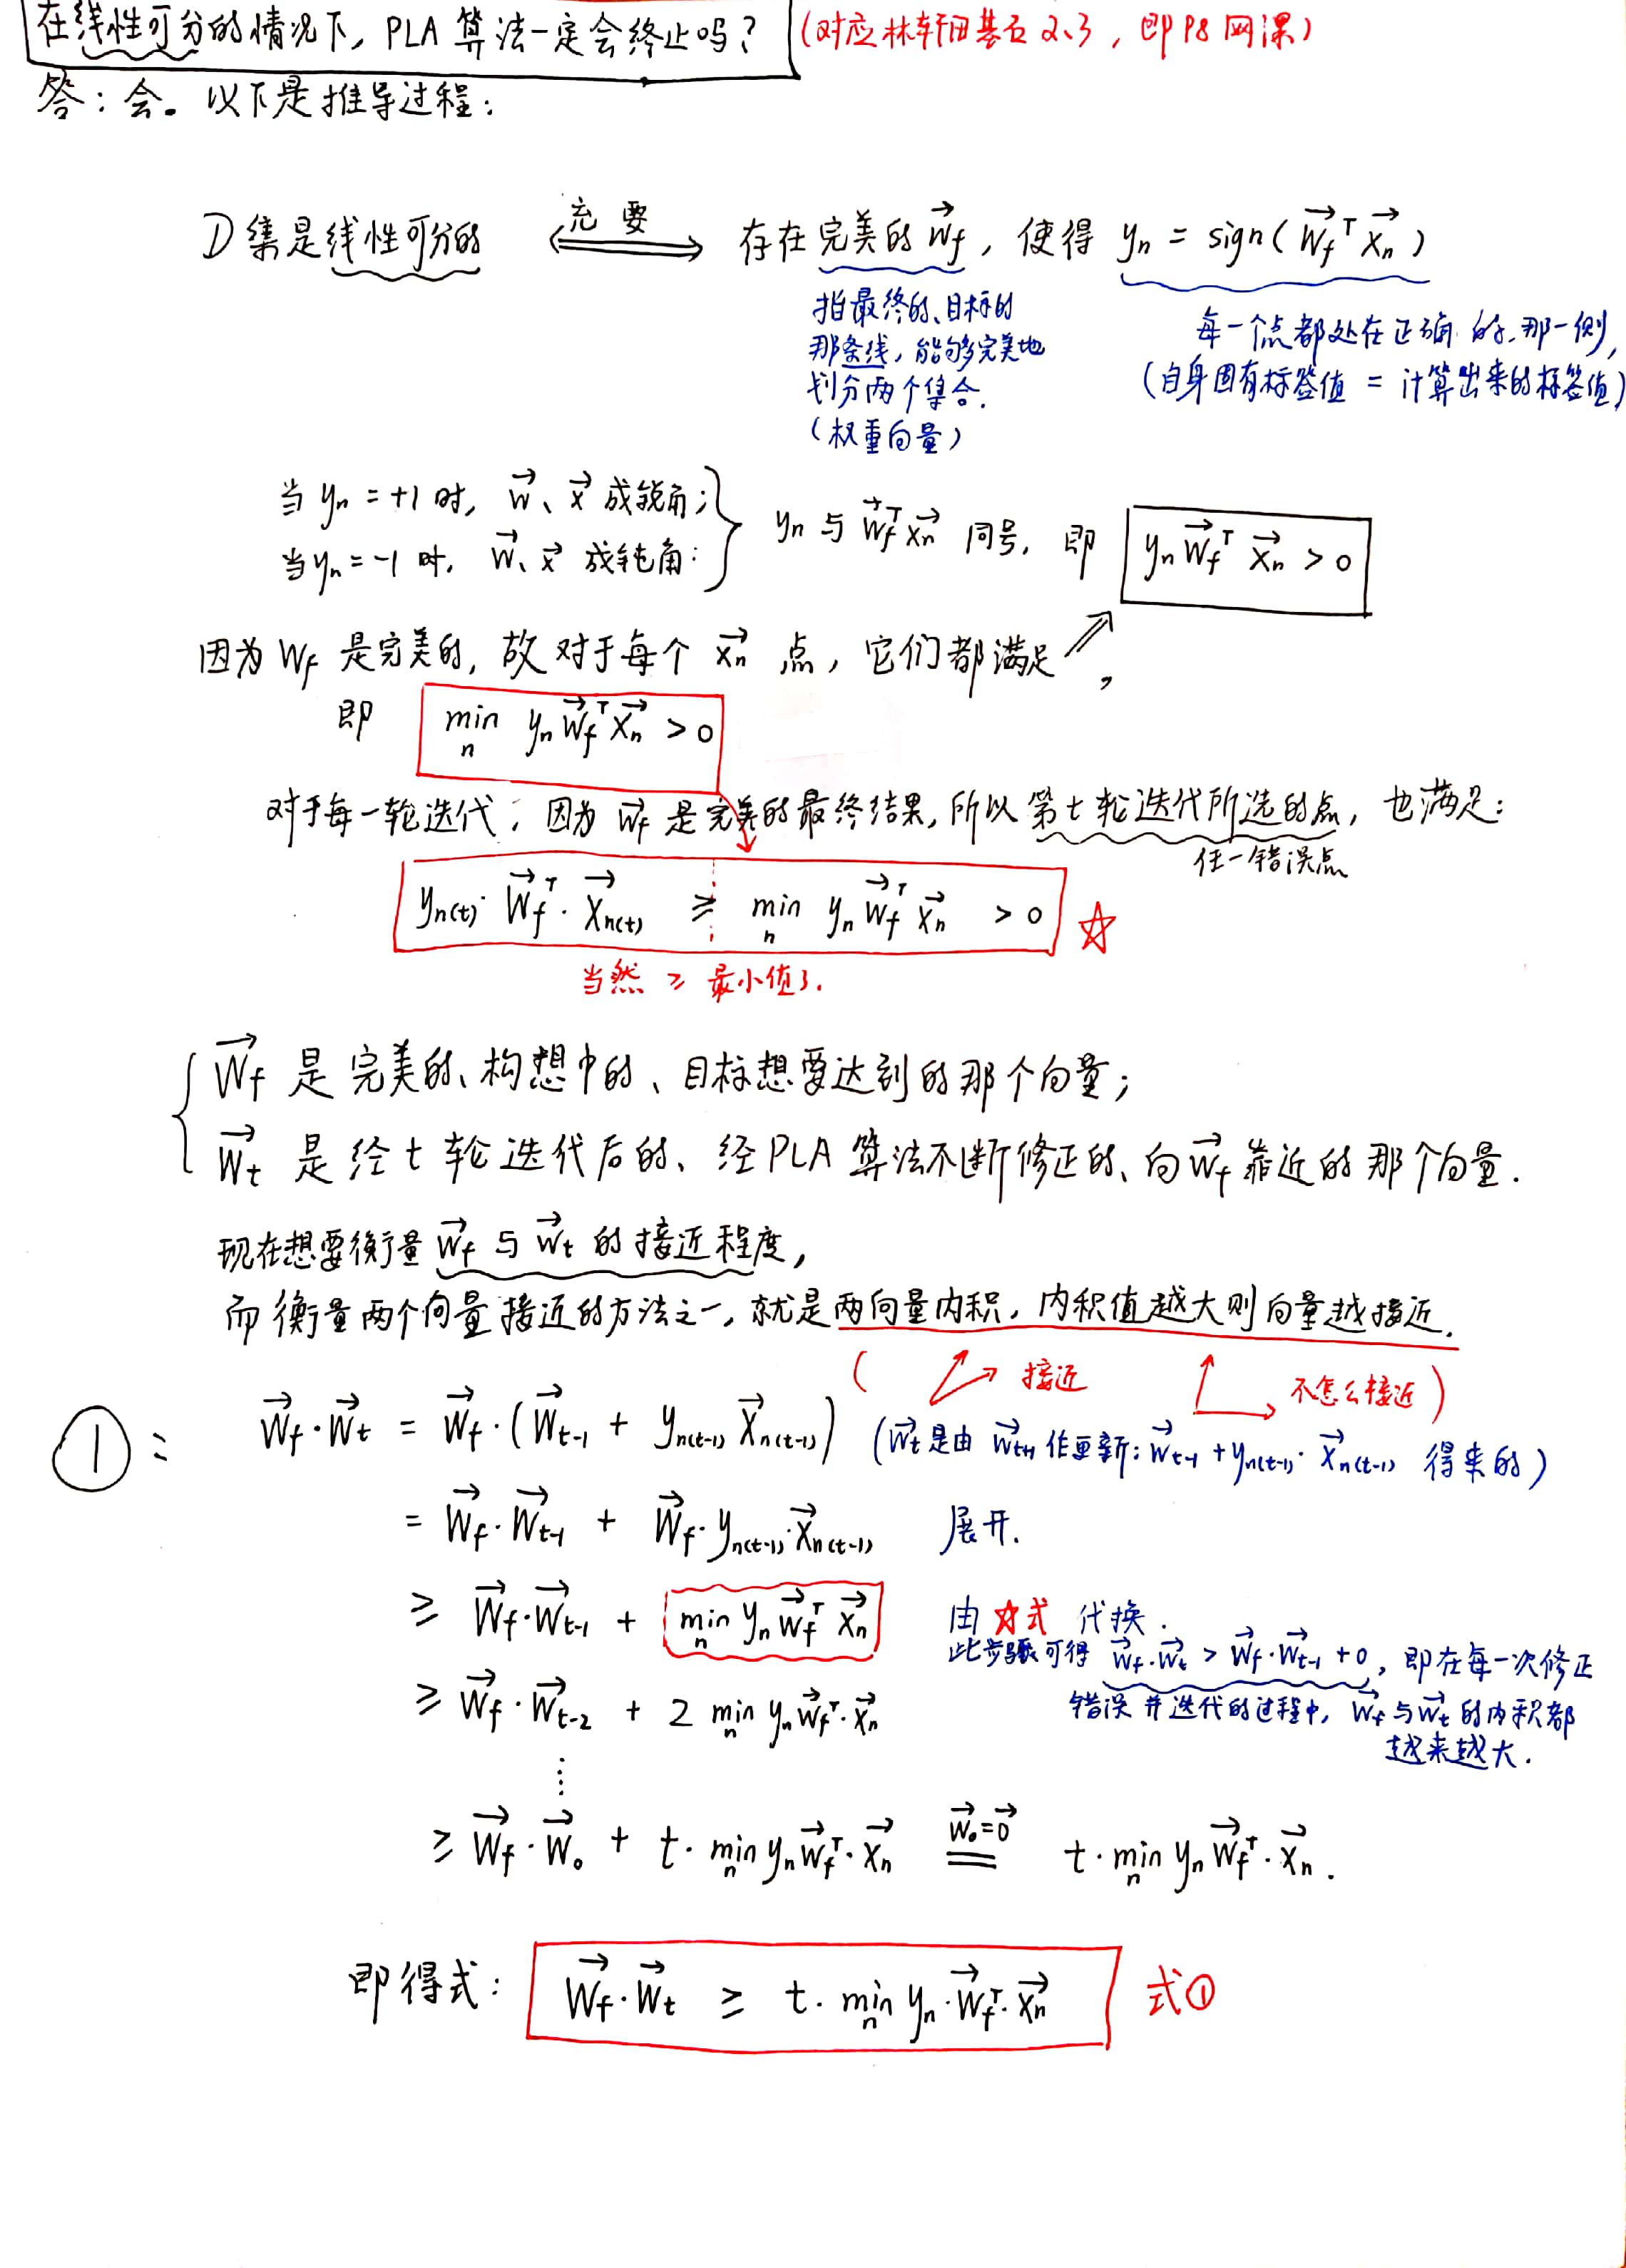 在线性可分的情况下，PLA 算法一定会终止吗？ (对应林轩田基石 2.3，即P8 网课)
答：会。以下是推导过程：
D 集是线性可分的 ⟺ 充要 存在完美的 $\vec{W}_f$，使得 $y_n = sign(\vec{W}_f^T \vec{X}_n)$
指最终的、目标的
那条线，能够完美地
划分两个集合.
(权重向量)
每一个点都处在正确的那一侧,
(自身固有标签值 = 计算出来的标签值)
当 $y_n = +1$ 时，$\vec{w}$、$\vec{x}$ 成锐角；
当 $y_n = -1$ 时，$\vec{w}$、$\vec{x}$ 成钝角：
$y_n$ 与 $\vec{W}_f^T \vec{X}_n$ 同号，即 $y_n \vec{W}_f^T \vec{X}_n > 0$
因为 $W_f$ 是完美的，故对于每个 $\vec{X}_n$ 点，它们都满足 ⇗，
即 $\min_n y_n \vec{W}_f^T \vec{X}_n > 0$
对于每一轮迭代；因为 $\vec{W}_f$ 是完美的最终结果，所以第 t 轮迭代所选的点，也满足：
任一错误点
$y_{n(t)} \cdot \vec{W}_f^T \cdot \vec{X}_{n(t)} \geq \min_n y_n \vec{W}_f^T \vec{X}_n > 0$ ☆
当然 ≥ 最小值了.
$\vec{W}_f$ 是完美的、构想中的、目标想要达到的那个向量；
$\vec{W}_t$ 是经 t 轮迭代后的、经PLA 算法不断修正的、向 $\vec{W}_f$ 靠近的那个向量.
现在想要衡量 $\vec{W}_f$ 与 $\vec{W}_t$ 的接近程度，
而衡量两个向量接近的方法之一，就是两向量内积，内积值越大则向量越接近.
( 接近 不怎么接近 )
①： $\vec{W}_f \cdot \vec{W}_t = \vec{W}_f \cdot (\vec{W}_{t-1} + y_{n(t-1)} \vec{X}_{n(t-1)})$ ($\vec{W}_t$ 是由 $\vec{W}_{t-1}$ 作更新：$\vec{W}_{t-1} + y_{n(t-1)} \cdot \vec{X}_{n(t-1)}$ 得来的)
$= \vec{W}_f \cdot \vec{W}_{t-1} + \vec{W}_f \cdot y_{n(t-1)} \cdot \vec{X}_{n(t-1)}$ 展开.
$\geq \vec{W}_f \cdot \vec{W}_{t-1} + \min_n y_n \vec{W}_f^T \vec{X}_n$ 由☆式 代换.
此步骤可得 $\vec{W}_f \cdot \vec{W}_t > \vec{W}_f \cdot \vec{W}_{t-1} + 0$，即在每一次修正
错误并迭代的过程中，$\vec{W}_f$ 与 $\vec{W}_t$ 的内积都
越来越大.
$\geq \vec{W}_f \cdot \vec{W}_{t-2} + 2 \min_n y_n \vec{W}_f^T \cdot \vec{X}_n$
⋮
$\geq \vec{W}_f \cdot \vec{W}_0 + t \cdot \min_n y_n \vec{W}_f^T \cdot \vec{X}_n \overset{\vec{W}_0 = \vec{0}}{=} t \cdot \min_n y_n \vec{W}_f^T \cdot \vec{X}_n$ .
即得式： $\vec{W}_f \cdot \vec{W}_t \geq t \cdot \min_n y_n \cdot \vec{W}_f^T \cdot \vec{X}_n$ 式①